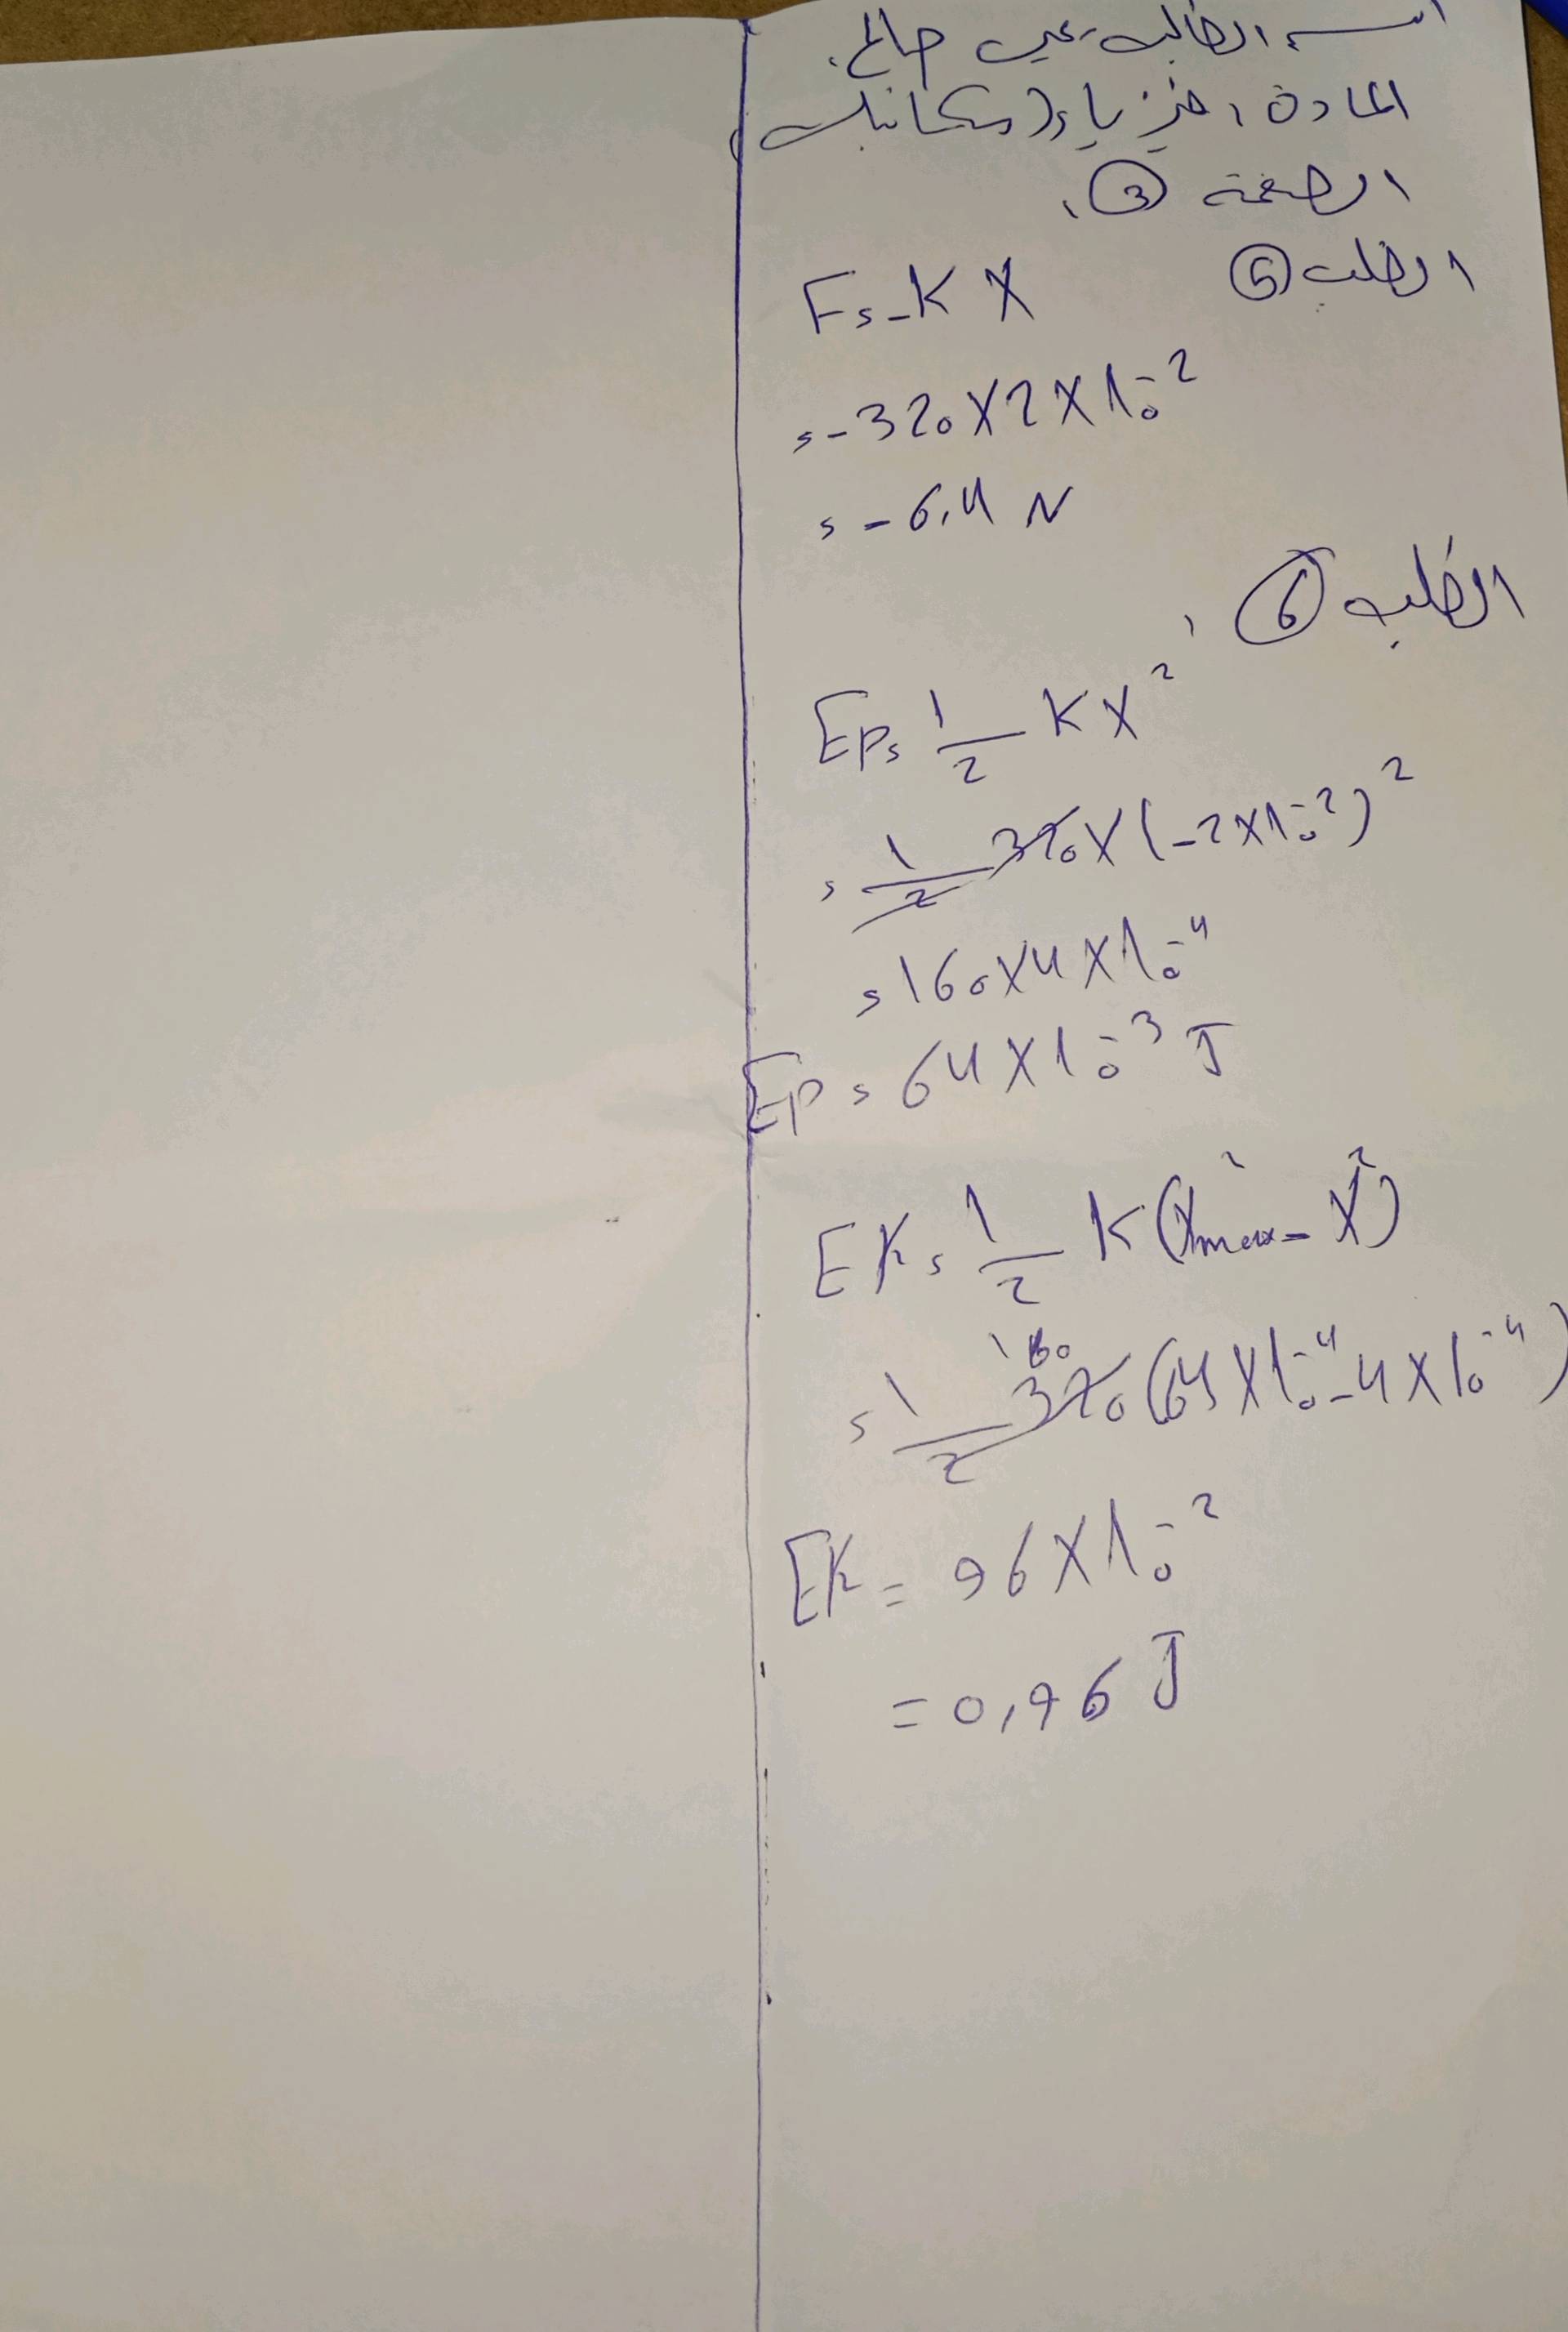 اسم الطالب: يحيى صالح.
المادة: فيزياء (ميكانيك)
الصفحة ③:
الطلب ⑤
F = -K X
= -320 X 2 X 10⁻²
= -6,4 N
الطلب ⑥:
Ep = 1/2 K X²
= 1/2 320 X (-2 X 10⁻²)²
= 160 X 4 X 10⁻⁴
Ep = 64 X 10⁻³ J
EK = 1/2 K (X²max - X²)
160
= 1/2 320 (64 X 10⁻⁴ - 4 X 10⁻⁴)
EK = 96 X 10⁻²
= 0,96 J